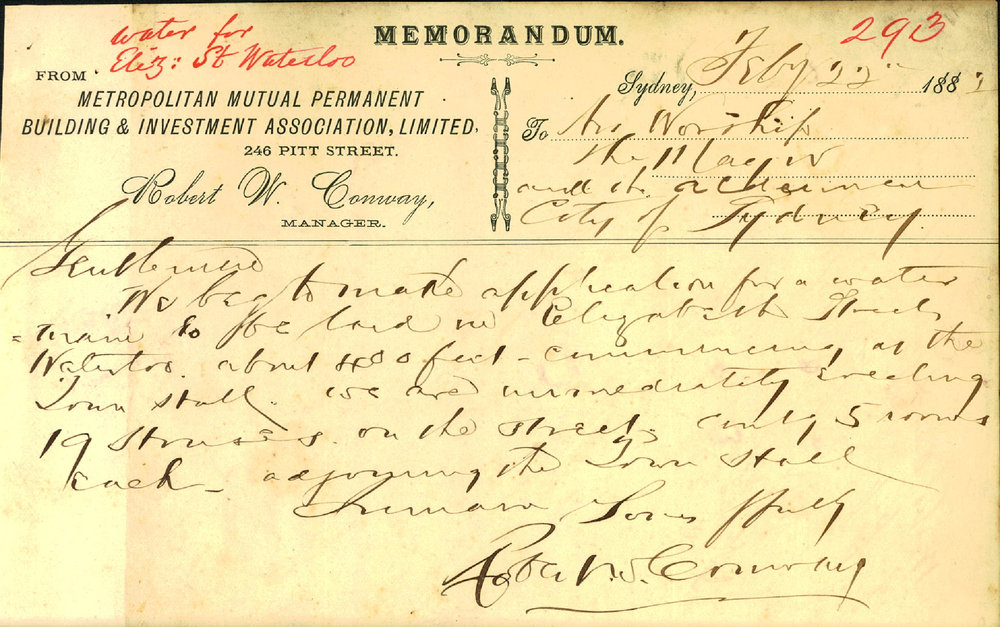 water for
Eliz: St Waterloo
MEMORANDUM.
293
FROM
METROPOLITAN MUTUAL PERMANENT
BUILDING & INVESTMENT ASSOCIATION, LIMITED,
246 PITT STREET.
Robert W. Conway,
MANAGER.
Sydney, Feby 22 188
To His Worship
the Mayor
and the aldermen
City of Sydney
Gentlemen
We beg to make application for a water
main to be laid in Elizabeth Street
Waterloo. about 400 feet - commencing at the
Town Hall. We are immediately erecting
19 Houses. on the street. only 5 rooms
each - adjoining the Town Hall
I remain Yours ffully
Robert W. Conway